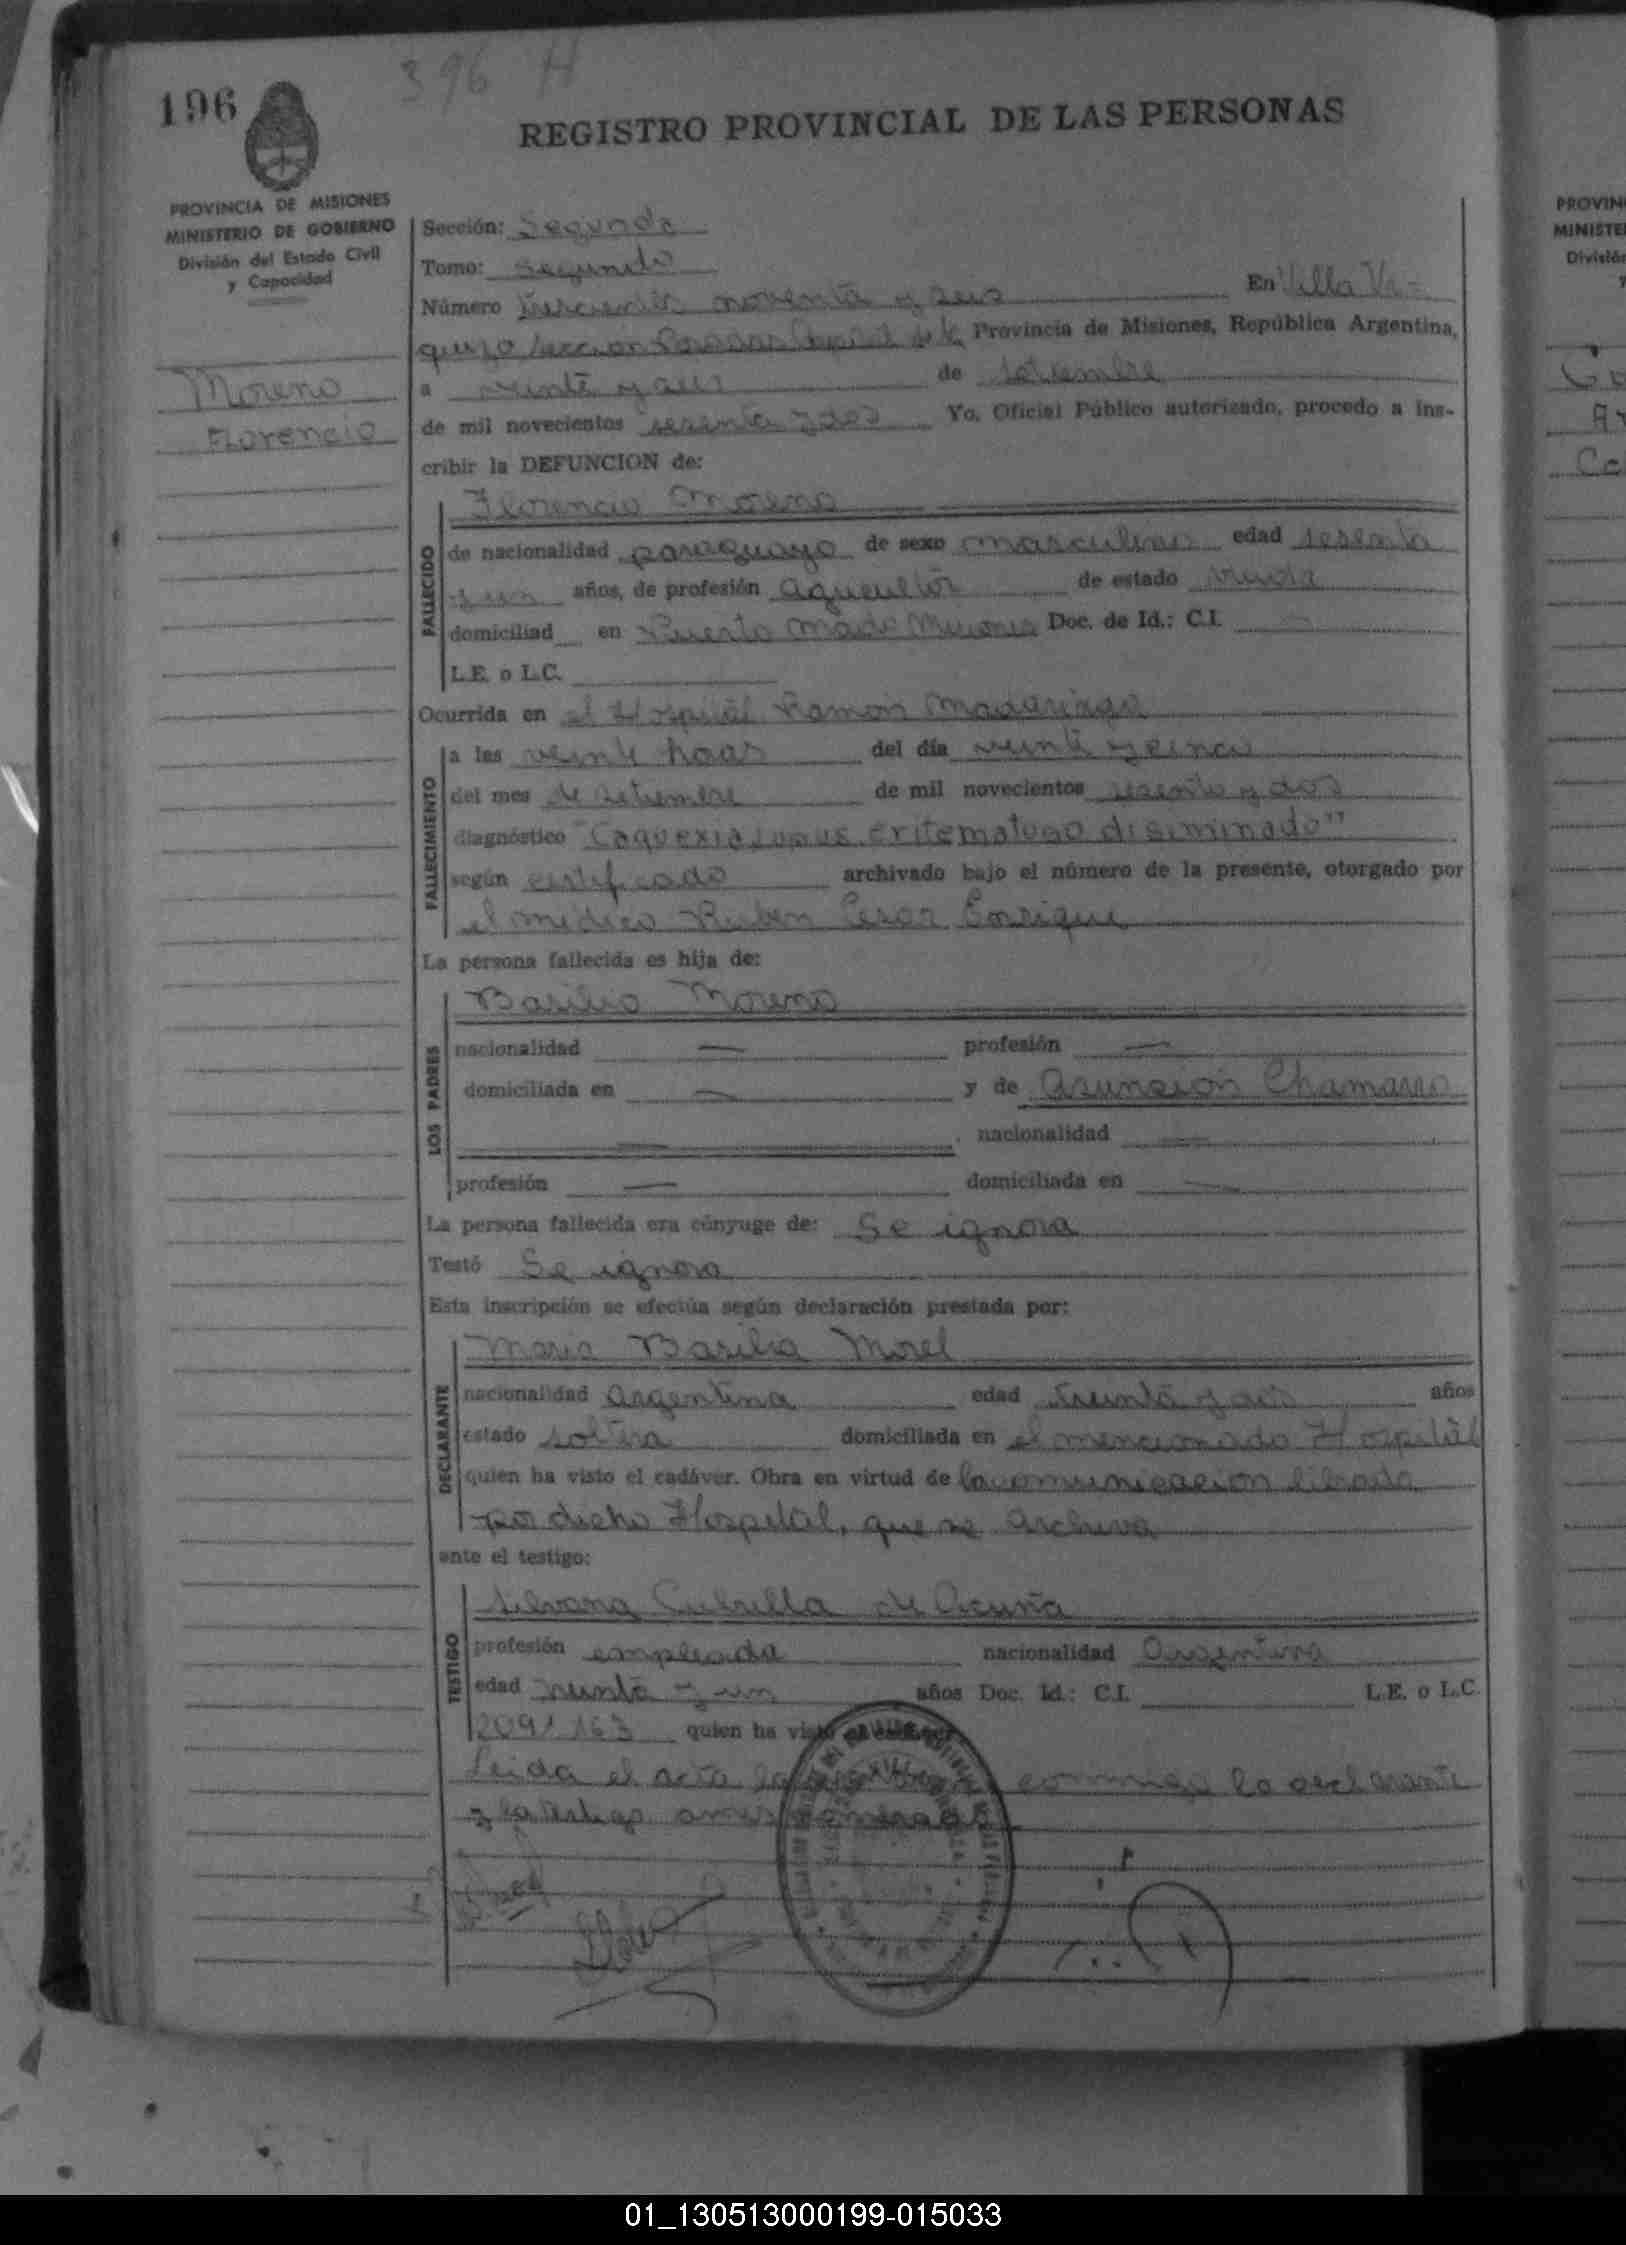 396 H
196
REGISTRO PROVINCIAL DE LAS PERSONAS
PROVINCIA DE MISIONES
MINISTERIO DE GOBIERNO
División del Estado Civil
y Capacidad
Moreno
Florencio
Sección: Segunda
Tomo: Segundo
Número trescientos noventa y seis En Villa
Provincia de Misiones, República Argentina,
a veinte y seis de setiembre
de mil novecientos sesenta y dos Yo, Oficial Público autorizado, procedo a ins-
cribir la DEFUNCION de:
FALLECIDO
Florencio Moreno
de nacionalidad paraguayo de sexo masculino edad sesenta
y un años, de profesión agricultor de estado viudo
domiciliad en Puerto Misiones Doc. de Id.: C.I.
L.E. o L.C.
Ocurrida en el Hospital Ramón Madariaga
FALLECIMIENTO
a las veinte horas del día veinte y cinco
del mes de setiembre de mil novecientos sesenta y dos
diagnóstico "Caquexia lupus eritematoso diseminado"
según certificado archivado bajo el número de la presente, otorgado por
el médico Ruben Cesar Enrique
La persona fallecida es hija de:
LOS PADRES
Basilio Moreno
nacionalidad — profesión —
domiciliada en — y de Asunción Chamarro
— nacionalidad —
profesión — domiciliada en —
La persona fallecida era cónyuge de: Se ignora
Testó Se ignora
Esta inscripción se efectúa según declaración prestada por:
DECLARANTE
Maria Basilia Morel
nacionalidad argentina edad treinta y seis años
estado soltera domiciliada en el mencionado Hospital
quien ha visto el cadáver. Obra en virtud de la comunicación librada
por dicho Hospital, que se archiva
ante el testigo:
TESTIGO
Silvana Cubilla de Acuña
profesión empleada nacionalidad Argentina
edad treinta y un años Doc. Id.: C.I. L.E. o L.C.
2091163 quien ha visto
Leida el acta conmigo la declarante
y la testigo
PROVIN
MINISTE
División
y
01_130513000199-015033